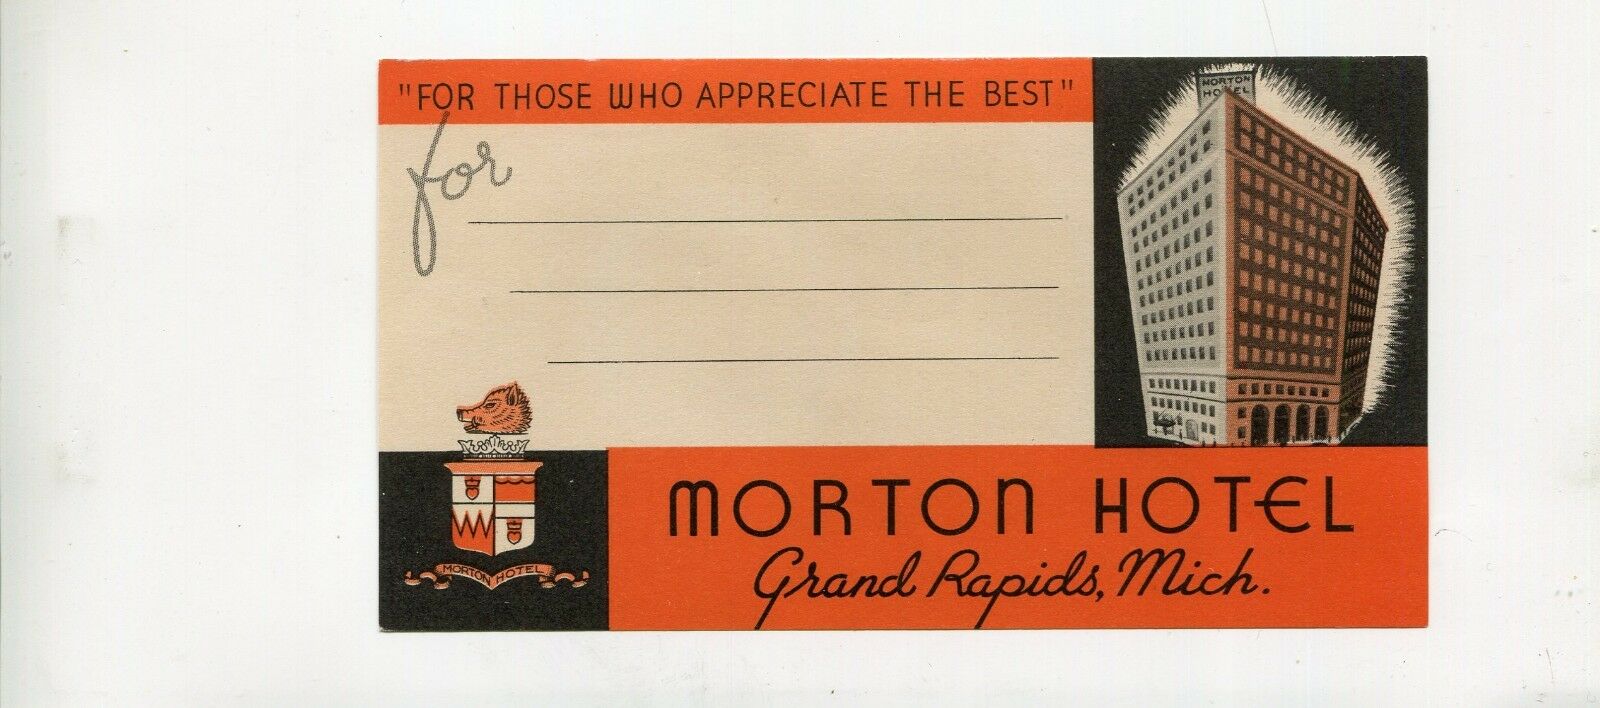 "FOR THOSE WHO APPRECIATE THE BEST"
for
MORTON
HOTEL
MORTON HOTEL
MORTON HOTEL
Grand Rapids, Mich.